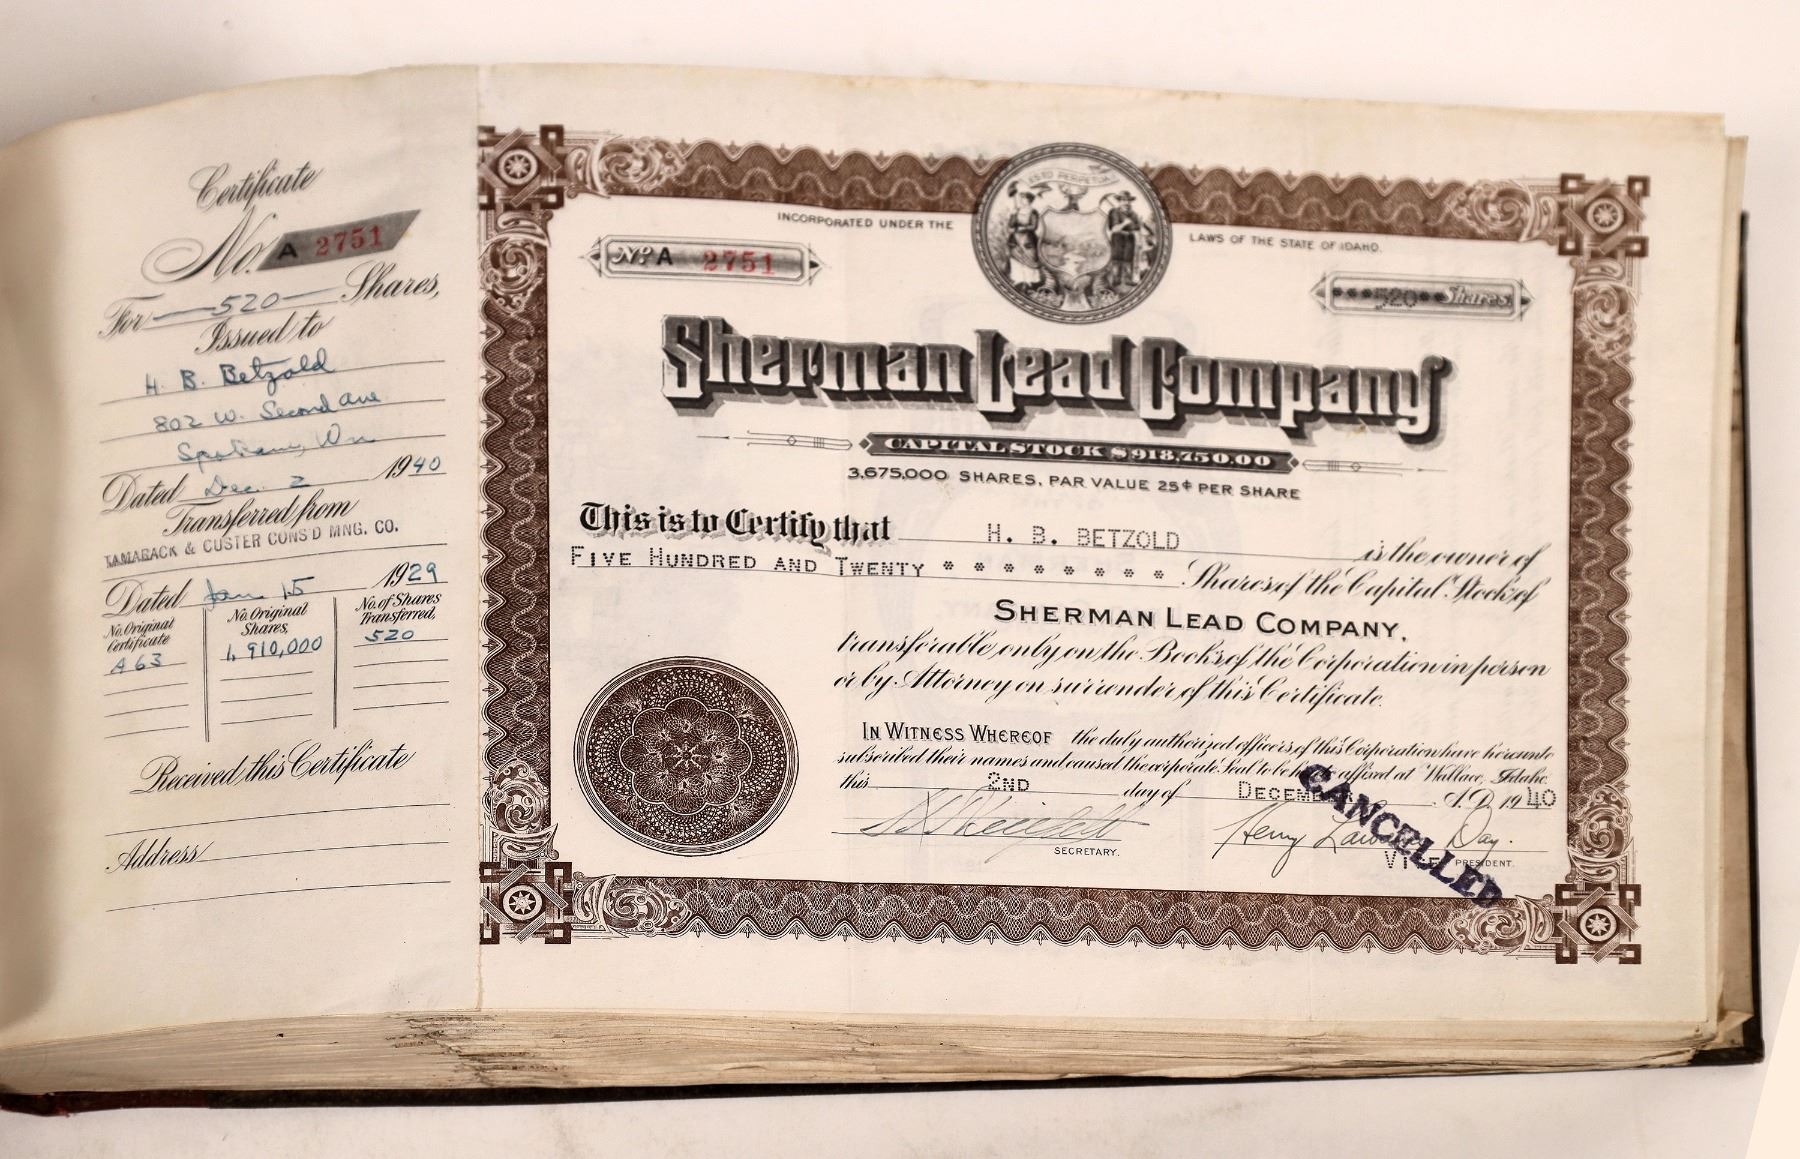 Certificate
No. A 2751
For 520 Shares,
Issued to
H. B. Betzold
802 W. Second Ave
Spokane, Wn
Dated Dec. 2 1940
Transferred from
TAMARACK & CUSTER CONS'D MNG. CO.
Dated Jan 15 1929
No. Original Certificate No. Original Shares, No. of Shares Transferred,
A 63 1,910,000 520
Received this Certificate
Address
INCORPORATED UNDER THE LAWS OF THE STATE OF IDAHO.
ESTO PERPETUA
No. A 2751
***520** Shares
Sherman Lead Company
CAPITAL STOCK $918,750.00
3,675,000 SHARES, PAR VALUE 25¢ PER SHARE
This is to Certify that H. B. BETZOLD is the owner of
FIVE HUNDRED AND TWENTY * * * * * * * * Shares of the Capital Stock of
SHERMAN LEAD COMPANY,
transferable only on the Books of the Corporation in person
or by Attorney on surrender of this Certificate.
IN WITNESS WHEREOF the duly authorized officers of this Corporation have hereunto
subscribed their names and caused the corporate Seal to be hereto affixed at Wallace, Idaho.
this 2ND day of DECEMBER A.D. 1940
Henry Lawrence Day.
SECRETARY. VICE PRESIDENT.
CANCELLED